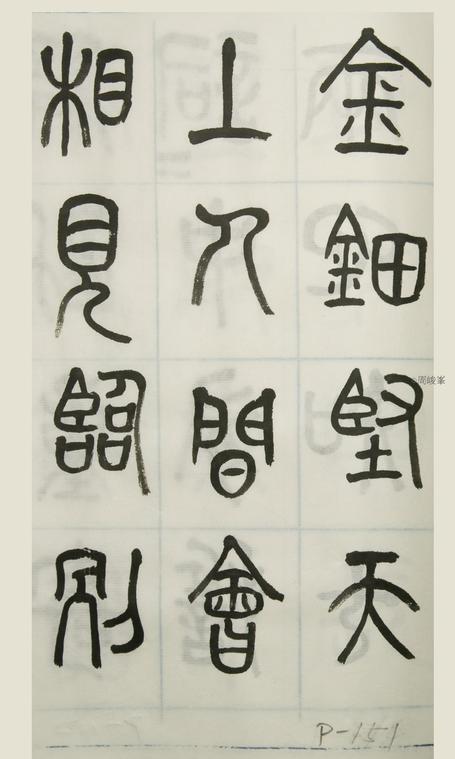 金鈿堅天
上人間會
相見臨別
周峻峯
P-151